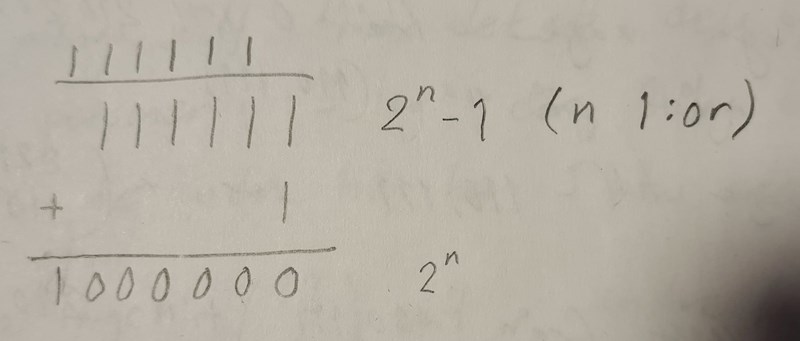 111111
111111 2ⁿ-1 (n 1:or)
+ 1
1000000 2ⁿ